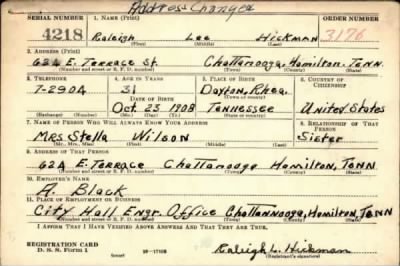 Address Changed
SERIAL NUMBER 1. NAME (Print) ORDER NUMBER
4218 Raleigh Lee Hickman 3176
(First) (Middle) (Last)
2. ADDRESS (Print)
62A E. Terrace St. Chattanooga, Hamilton, Tenn.
(Number and street or R. F. D. number) (Town) (County) (State)
3. TELEPHONE 4. AGE IN YEARS 5. PLACE OF BIRTH 6. COUNTRY OF CITIZENSHIP
7-2904 31 Dayton, Rhea.
DATE OF BIRTH (Town or county)
Oct 23 1908 Tennessee United States
(Exchange) (Number) (Mo.) (Day) (Yr.) (State or country)
7. NAME OF PERSON WHO WILL ALWAYS KNOW YOUR ADDRESS 8. RELATIONSHIP OF THAT PERSON
Mrs Stella Wilson Sister
(Mr., Mrs., Miss) (First) (Middle) (Last)
9. ADDRESS OF THAT PERSON
62A E. Terrace Chattanooga Hamilton, Tenn
(Number and street or R. F. D. number) (Town) (County) (State)
10. EMPLOYER'S NAME
A. Black
11. PLACE OF EMPLOYMENT OR BUSINESS
City Hall Engr. Office Chattanooga, Hamilton, Tenn
(Number and street or R. F. D. number) (Town) (County) (State)
I AFFIRM THAT I HAVE VERIFIED ABOVE ANSWERS AND THAT THEY ARE TRUE.
REGISTRATION CARD
D. S. S. Form 1 (over) Raleigh L. Hickman
(Registrant's signature)